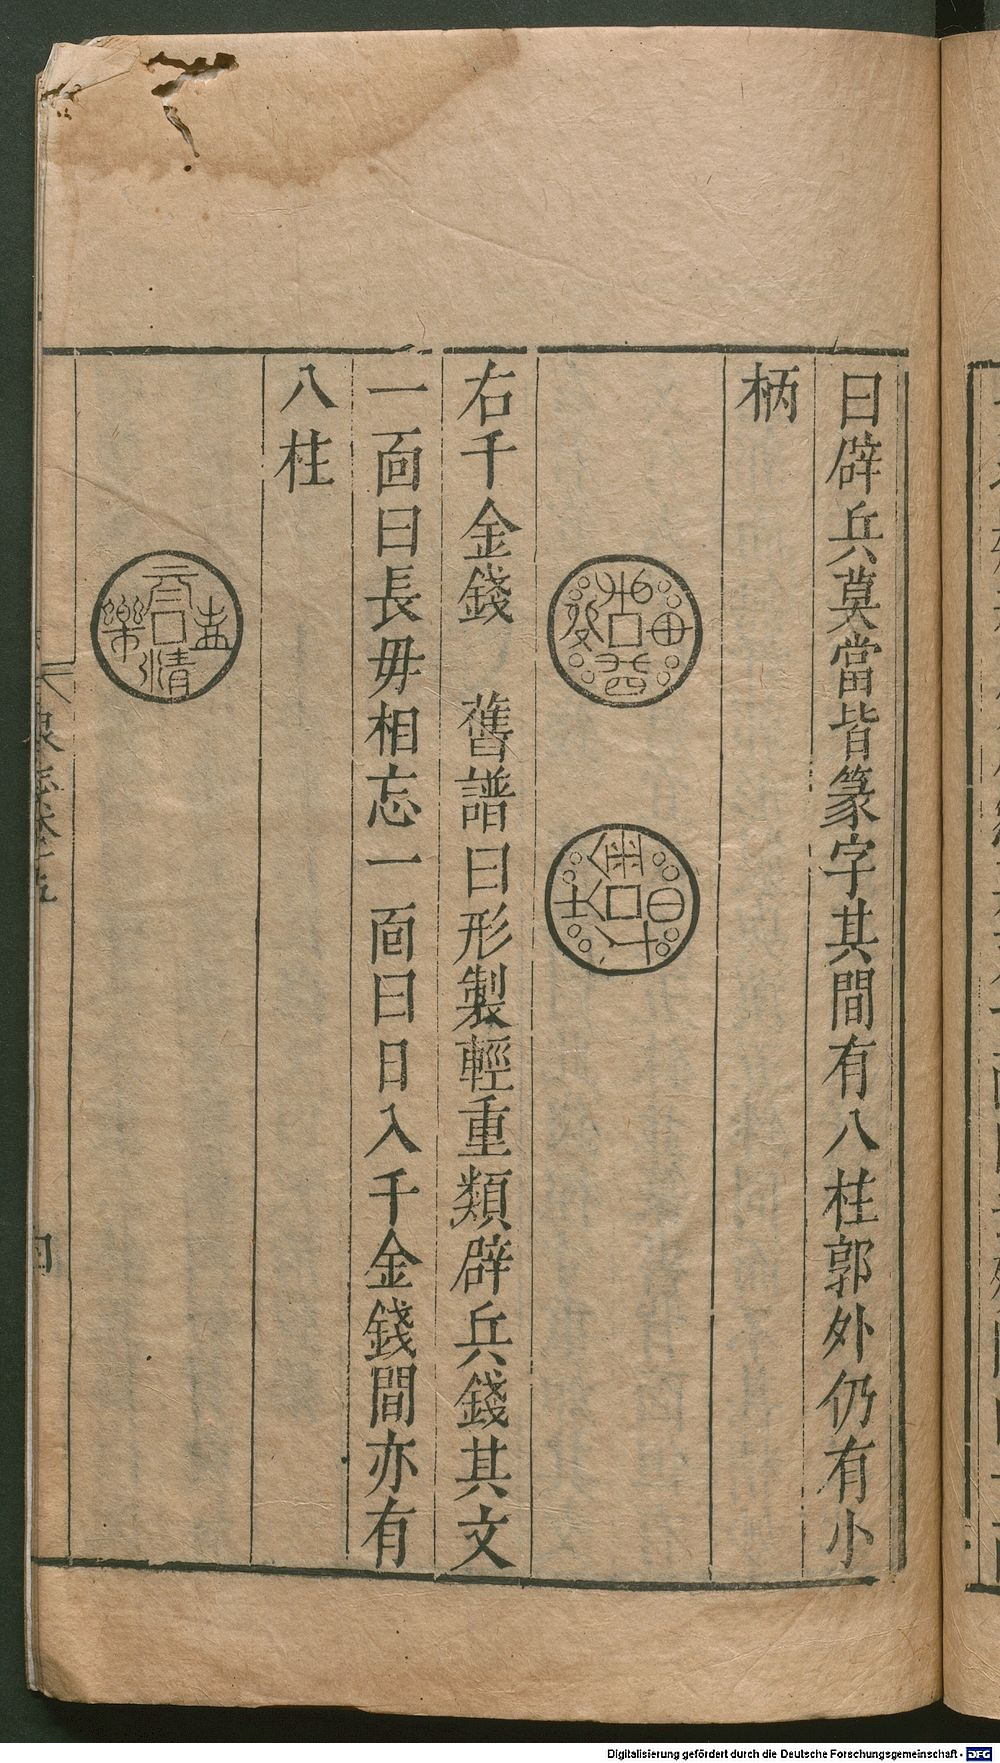 曰辟兵莫當皆篆字其間有八柱郭外仍有小
柄
右千金錢　舊譜曰形製輕重類辟兵錢其文
一面曰長毋相忘一面曰日入千金錢間亦有
八柱
泉志卷十五
四
Digitalisierung gefördert durch die Deutsche Forschungsgemeinschaft - DFG